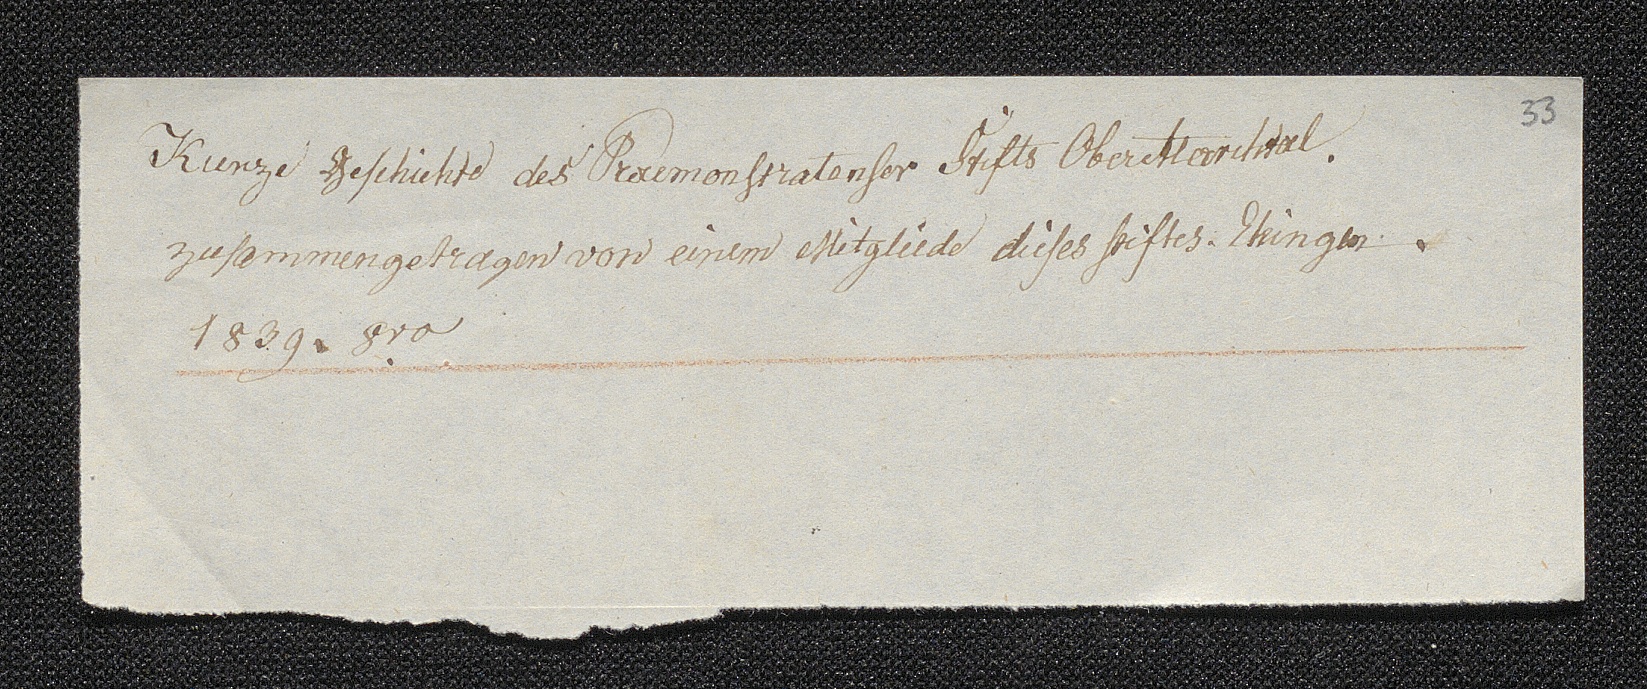 33
Kurze Geschichte des Praemonstratenser Stifts Obermarchtal.
zusammengetragen von einem Mitgliede dieses stiftes. Ehingen.
1839. 8vo